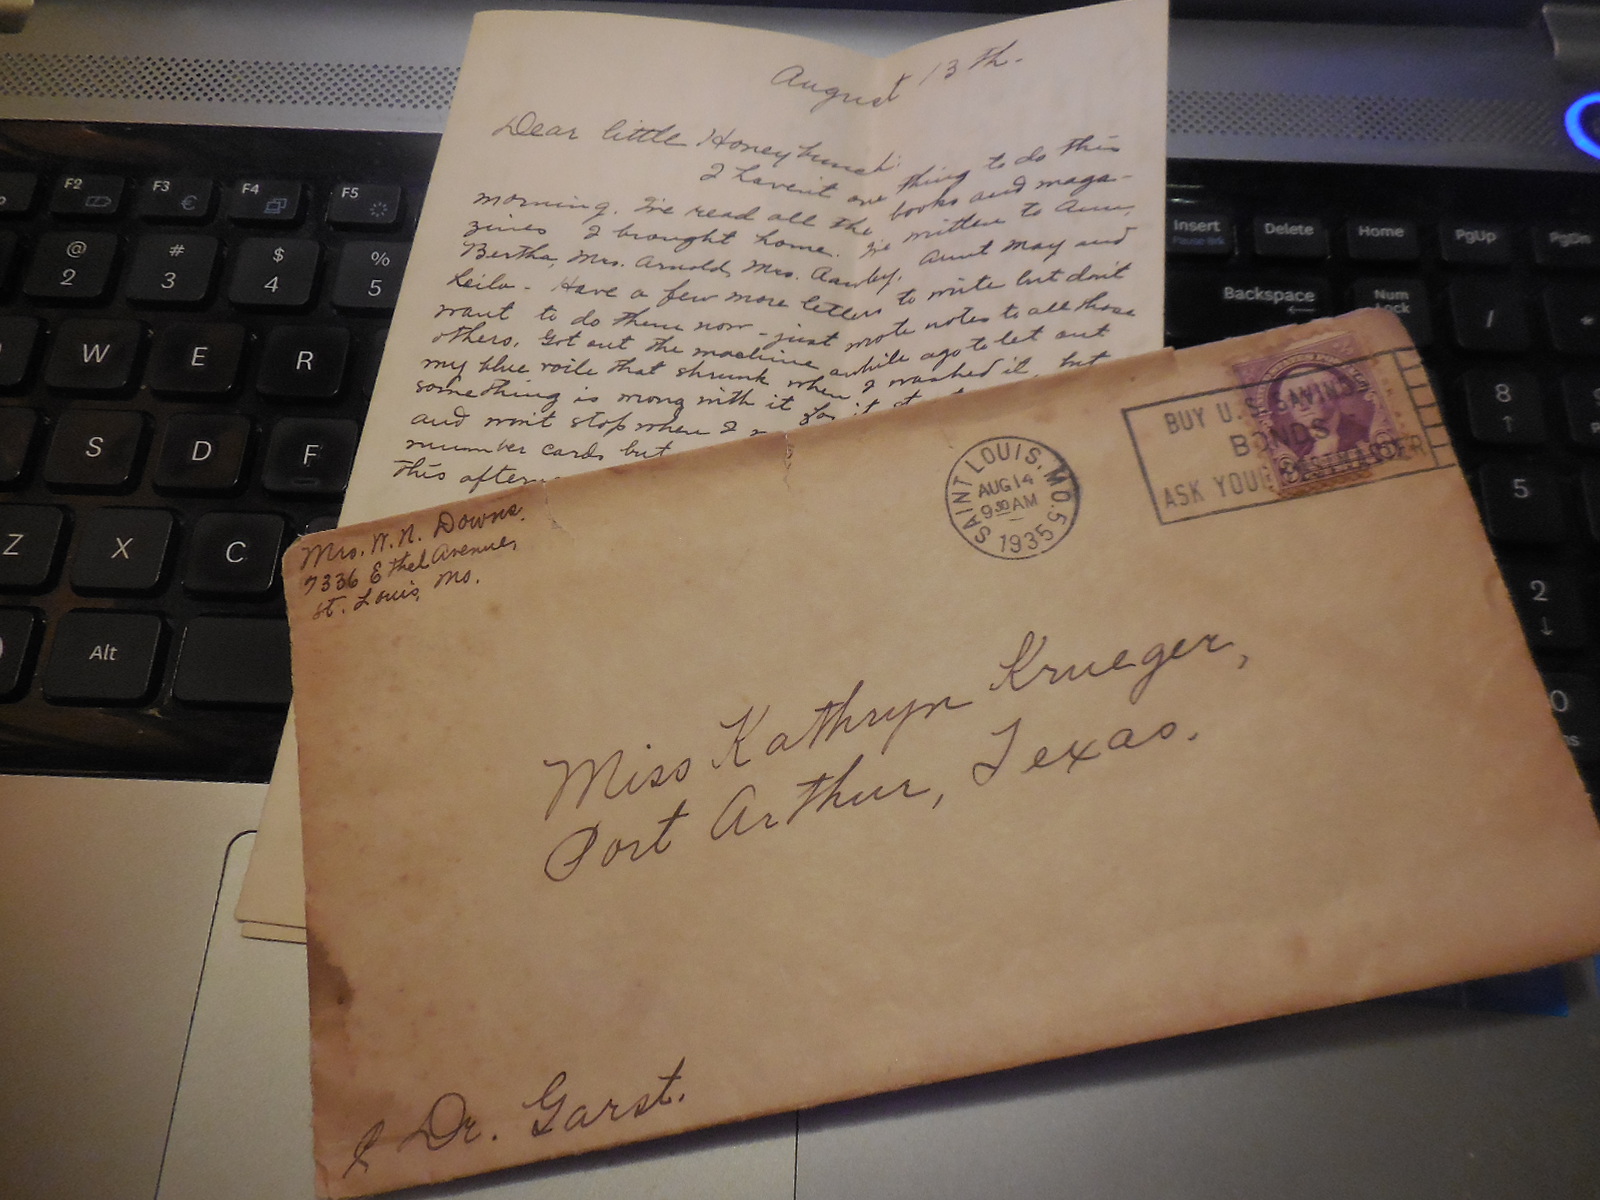 August 13th.
Dear little Honeybunch:
I haven't one thing to do this
morning. I've read all the books and maga-
zines I brought home. I've written to Ann,
Bertha, Mrs. Arnold, Mrs. Aunt May and
Leila - Have a few more letters to write but don't
want to do them now - just wrote notes to all those
others. Got out the machine awhile ago to let out
my blue voile that shrunk when I washed it, but
something is wrong with it for it
and won't stop when I
number cards but
this after
Mrs. W. N. Downs.
7336 Ethel Avenue,
St. Louis, Mo.
SAINT LOUIS, MO. 5
AUG 14
9 30 AM
1935
BUY U.S. SAVINGS
BONDS
ASK YOUR POSTMASTER
Miss Kathryn Krueger,
Port Arthur, Texas.
Dr. Garst.
F2
F3
F4
F5
@
2
#
3
$
4
%
5
W
E
R
S
D
F
Z
X
C
Alt
Insert
Pause Brk
Delete
Home
PgUp
PgDn
Backspace
Num
lock
/
*
8
5
2
0